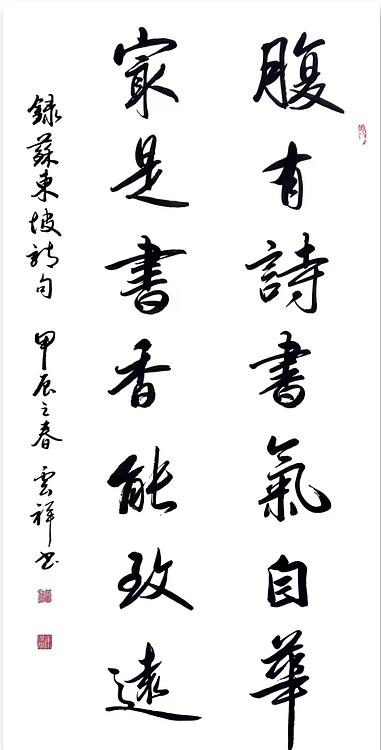 腹有詩書氣自華
最是書香能致遠
錄蘇東坡詩句 甲辰之春 雲祥書